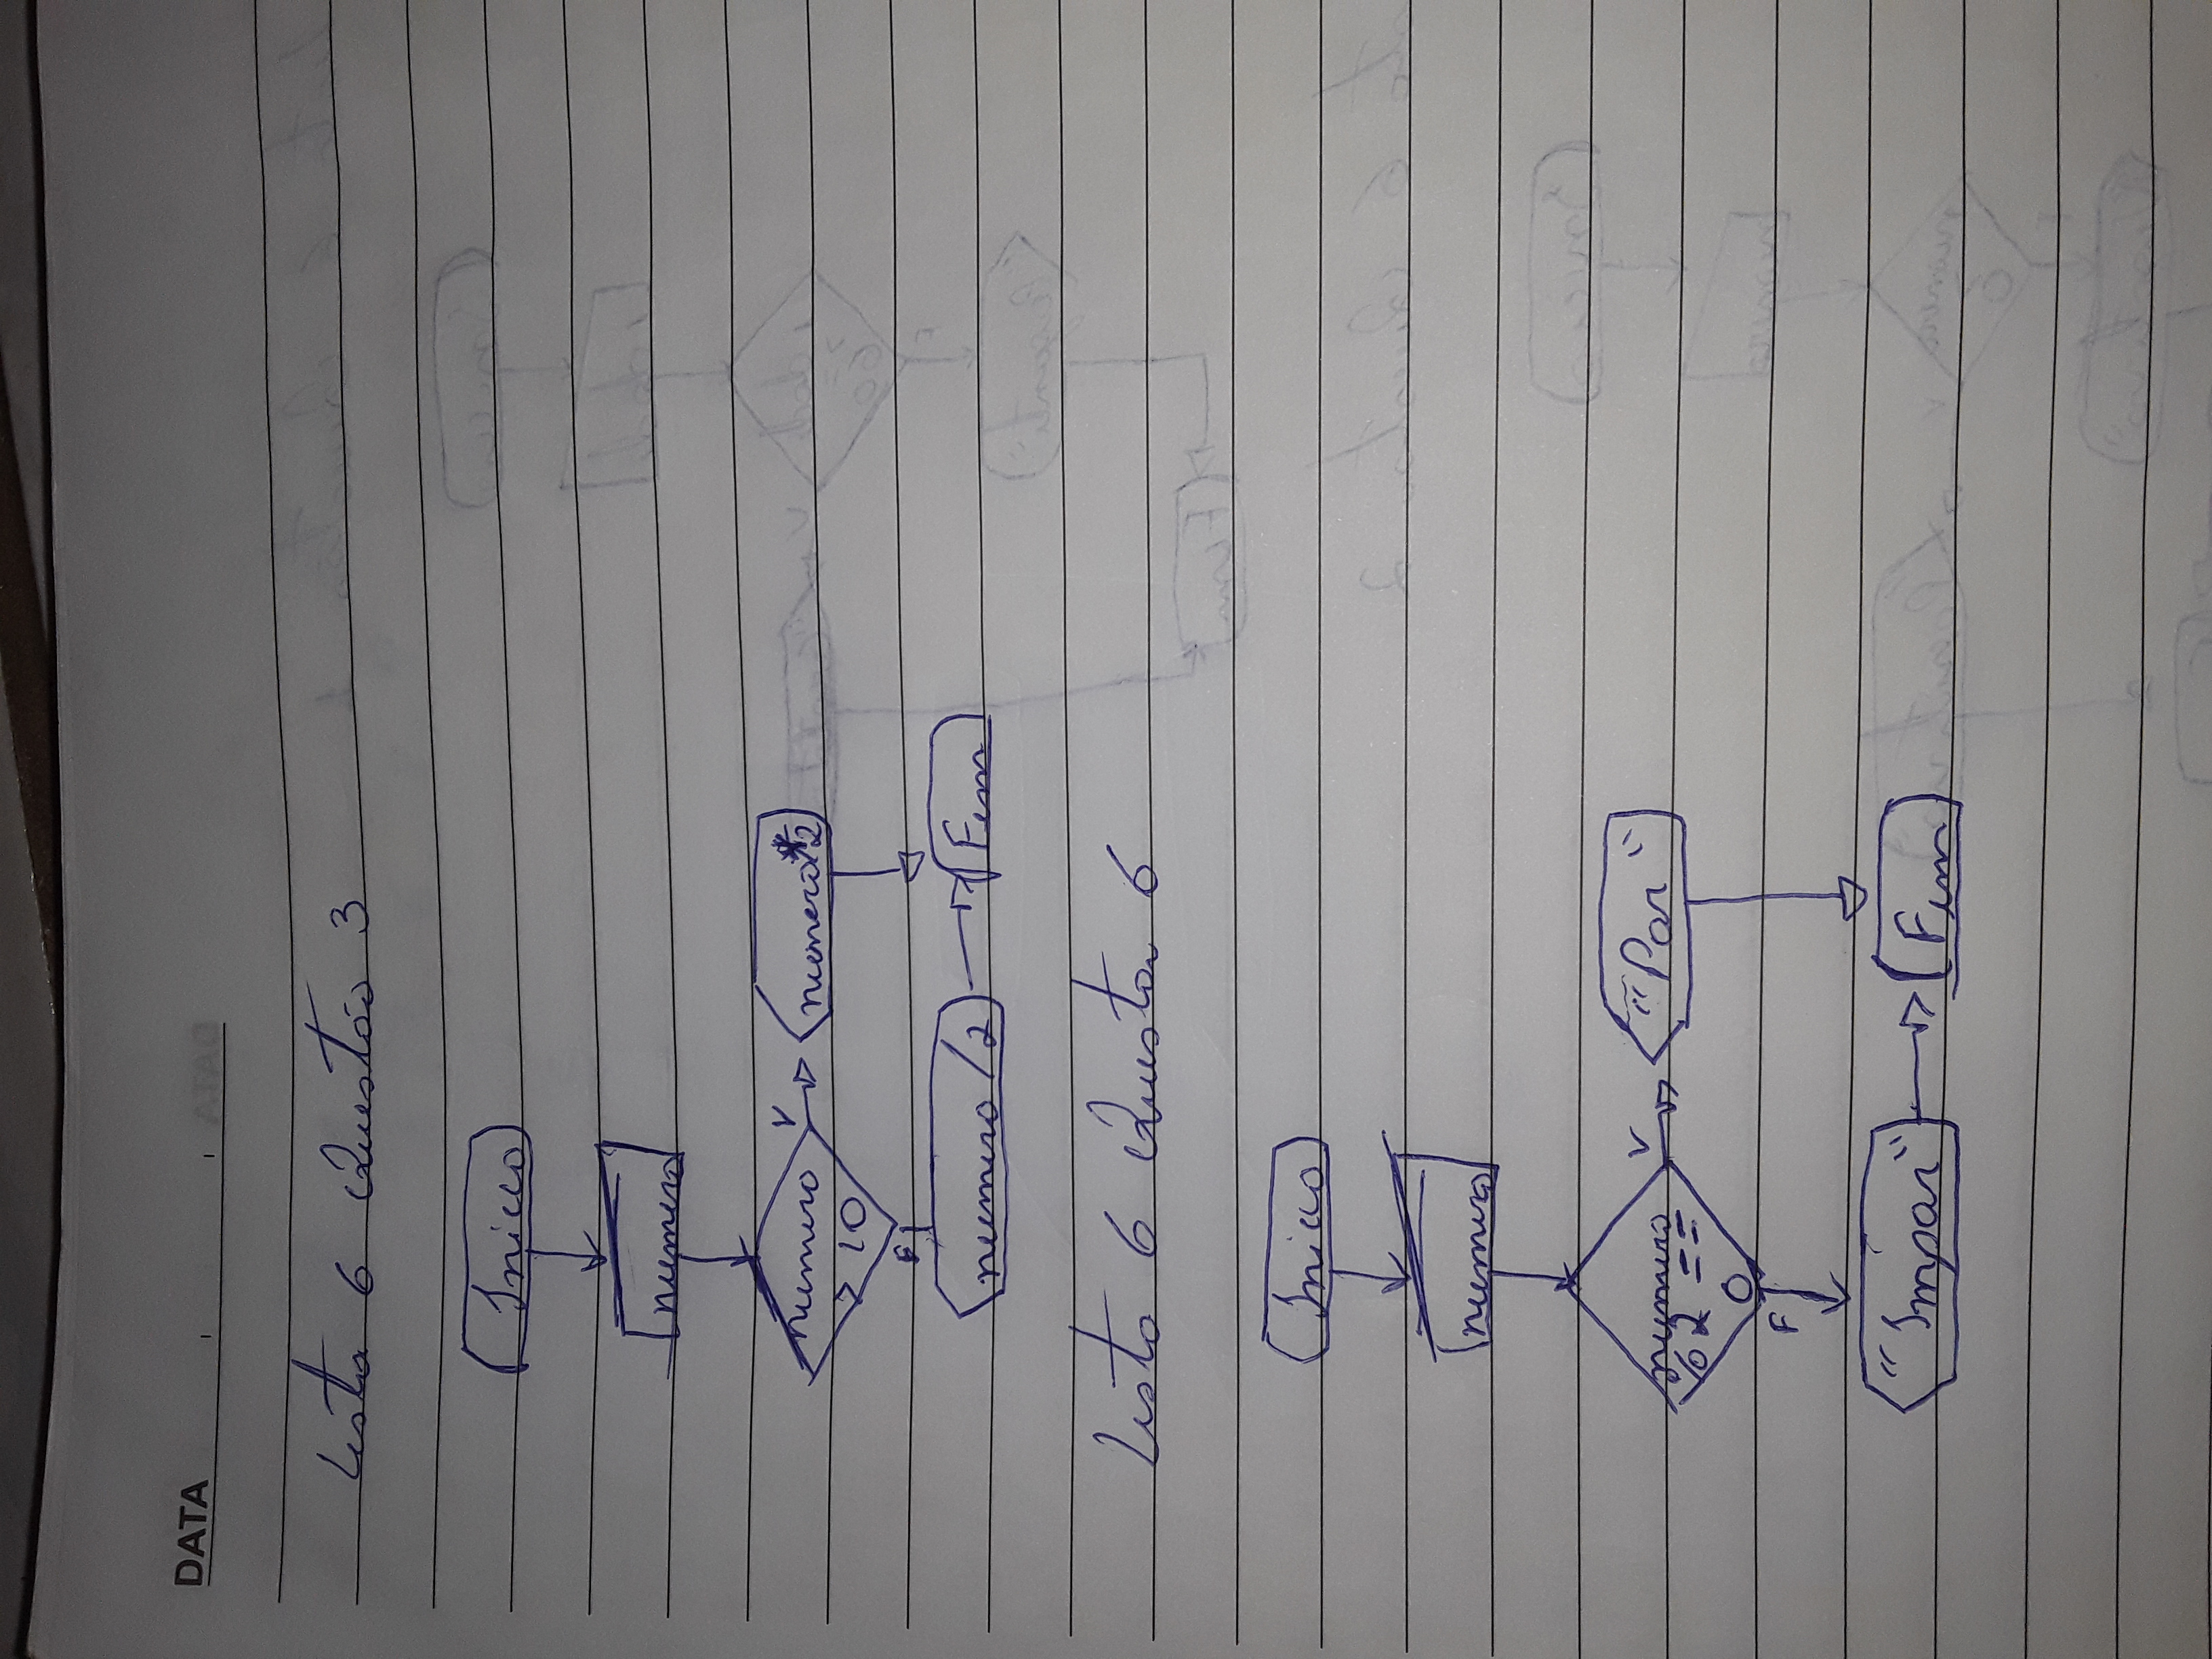 DATA
Lista 6 Questão 3
Inicio
numero
numero
> 10
V
numero*2
F
numero/2
Fim
Lista 6 Questão 6
Inicio
numero
numero
%2 ==
0
V
"Par"
F
"Impar"
Fim